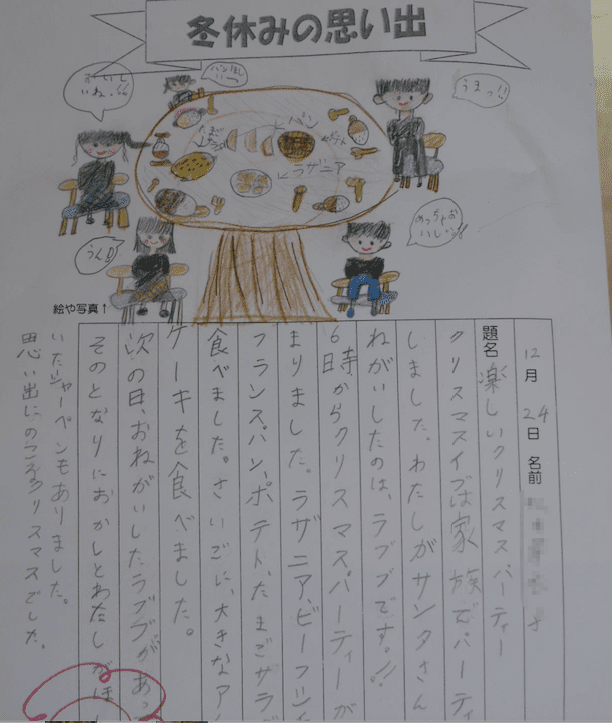 冬休みの思い出
おいしいね!!
パンほしい〜
うまっ!!
うん!!
めっちゃおいしい!!
パン
ポテト
たまごサラダ
ラザニア
絵や写真↑
12月24日 名前
題名 楽しいクリスマスパーティー
クリスマスイブは家族でパーティ
しました。わたしがサンタさん
ねがいしたのは、ラブブです。!!
6時からクリスマスパーティーが
まりました。ラザニア、ビーフシ
フランスパン、ポテト、たまごサラダ
食べました。さいごに、大きなア
ケーキを食べました。
次の日、おねがいしたラブブがあっ
そのとなりにおかしとわたしがほ
いたシャーペンもありました。
思い出にのこるクリスマスでした。